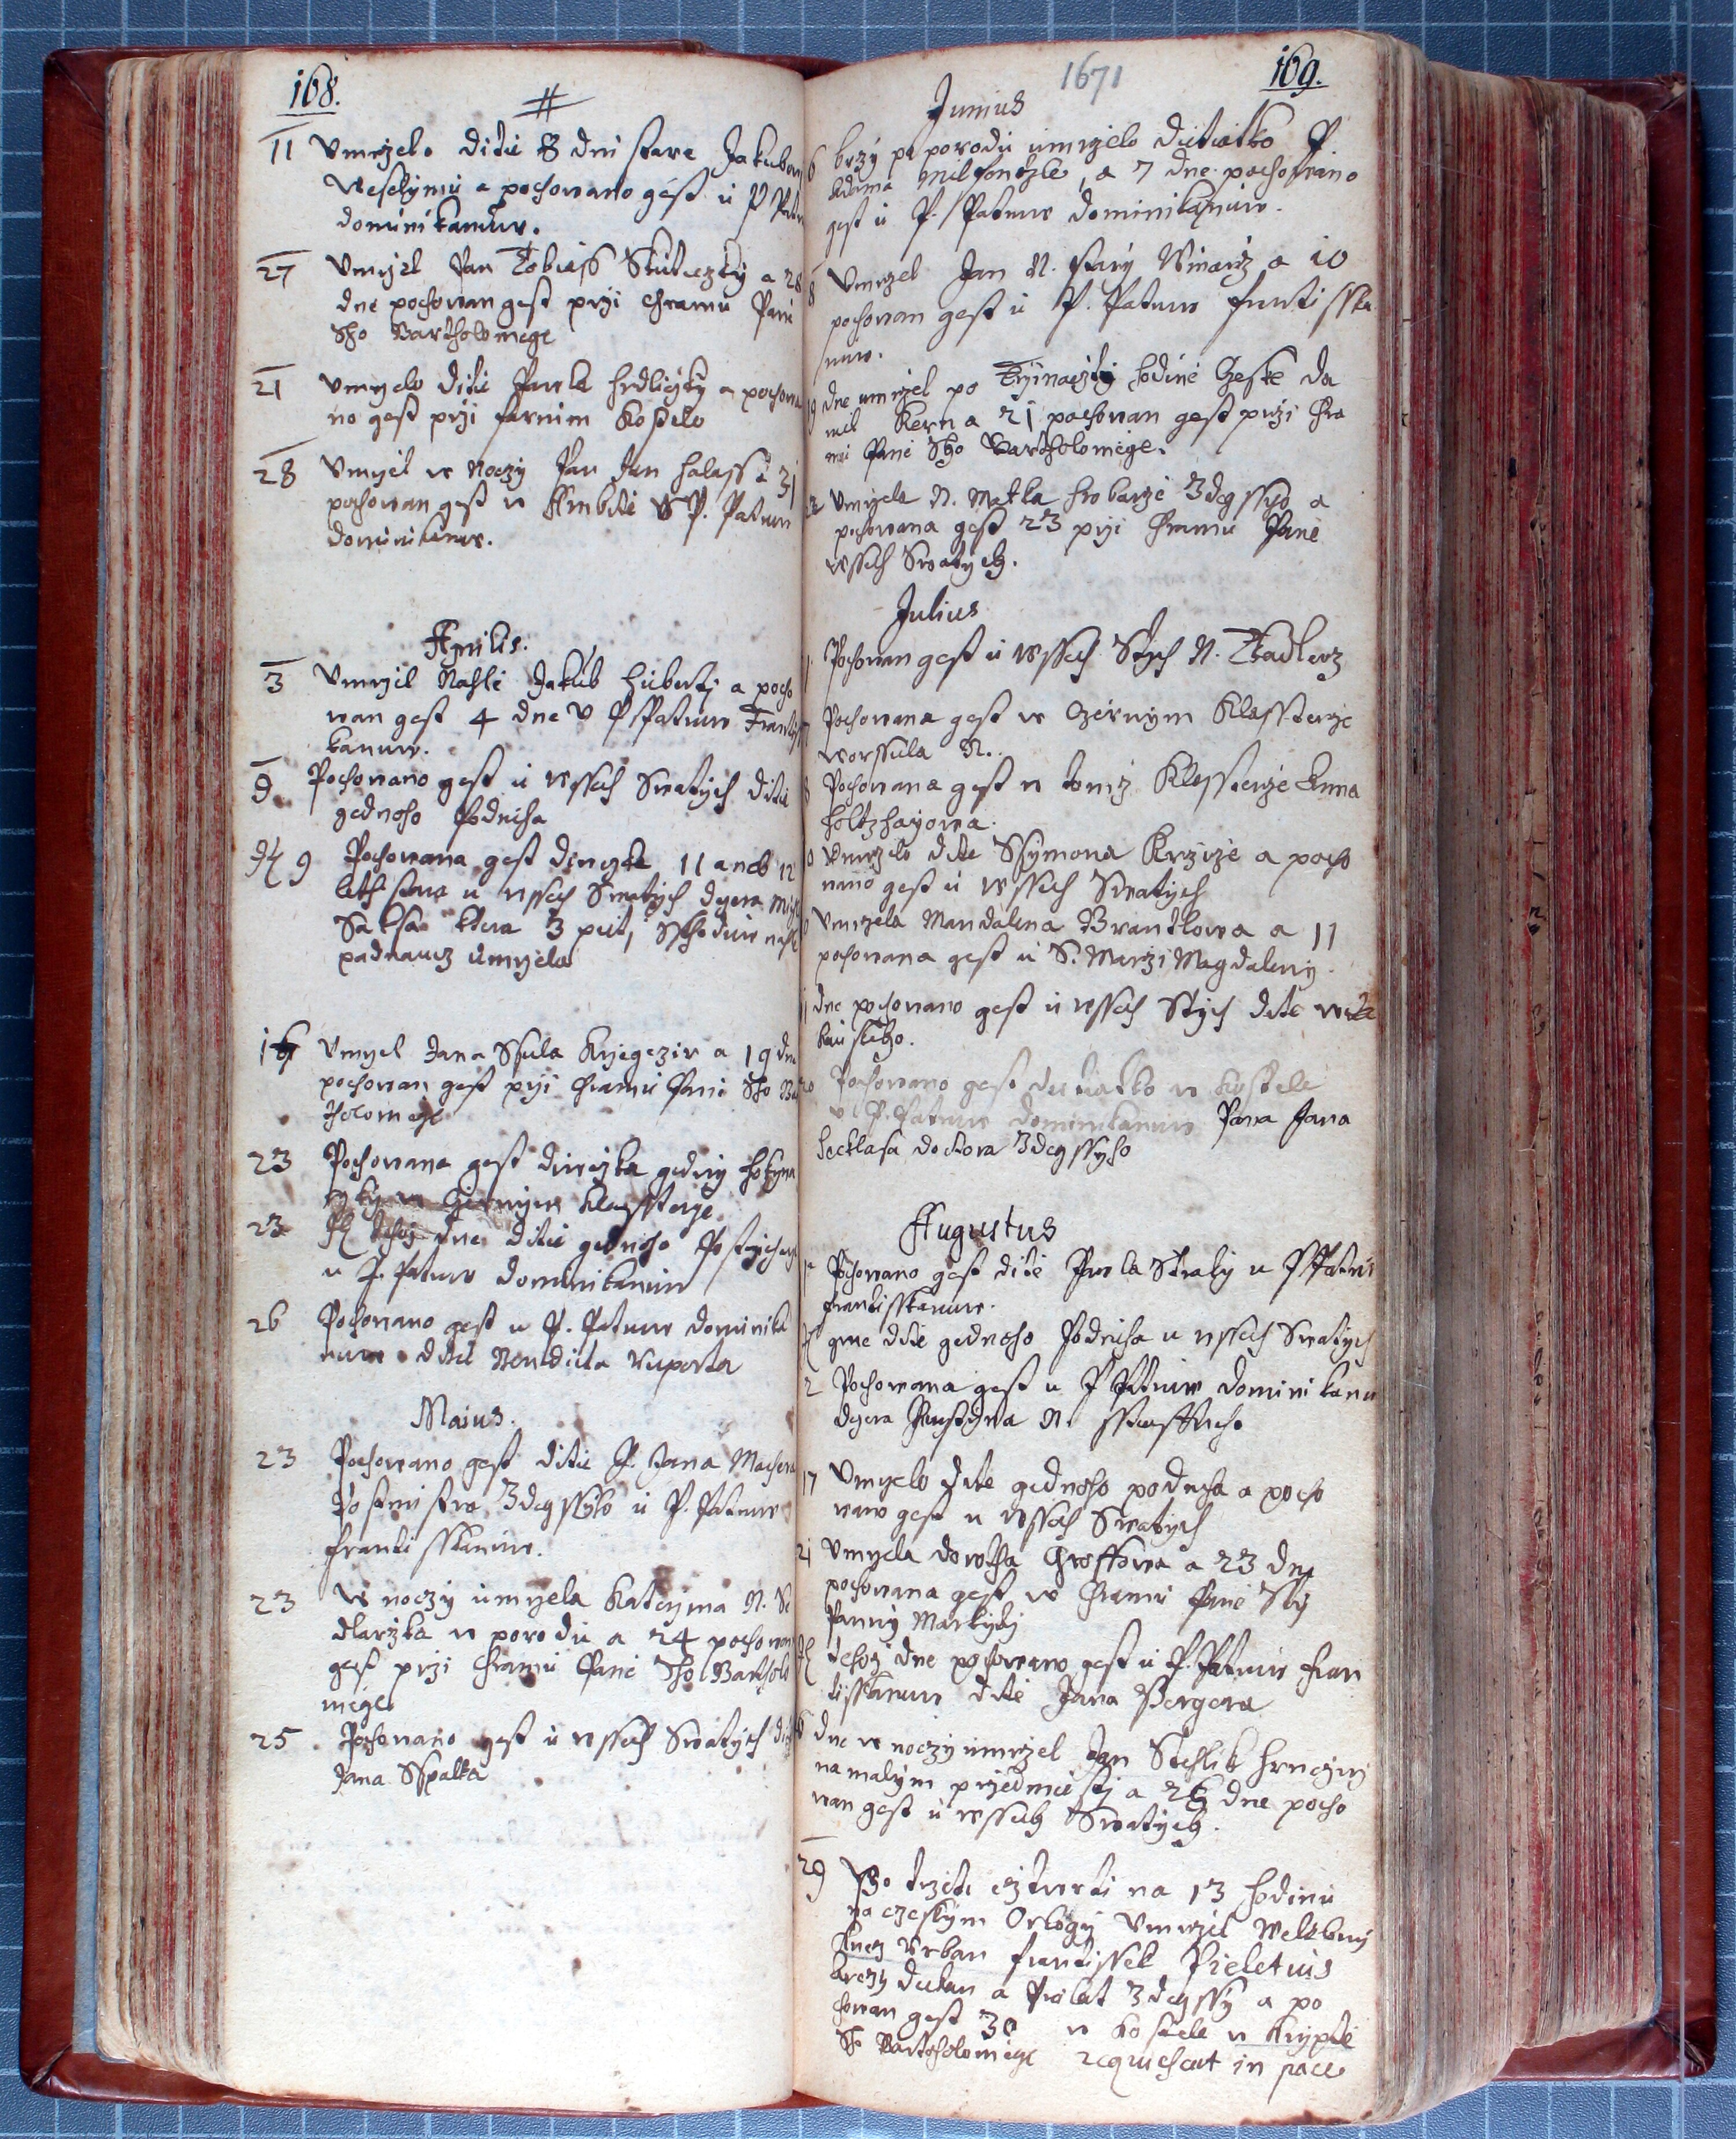 168.
11 Umrzelo ditie 8 dni stare Jakubow
Weselymu a pochowano gest u P Patr
dominikanuw.
27 Umrzel Pan Tobiass Skuteczky a 28
dne pochowan gest przi Chramu Panie
Sho Bartholomege
21 Umrzelo ditie Pawla Hrdliczky a pochowa
no gest przi farnim Kostele
28 Umrzel w Noczy Pan Jan Halass a 31
pochowan gest w Ambite V P. Patruw
dominikanuw.
Aprilis.
3 Umrzel Nahle Jakub Huberti a pocho
wan gest 4 dne V P Patruw Frantiss
kanuw.
9 Pochowano gest u wssech Swatych ditie
gednoho Podruha
9 Pochowana gest diweczka 11 aneb 12
leth stara u wssech Swatych dcera
Saksa ktera 3 Schoduw
padnauc umrzela
16 Umrzel Jana Ssula Kregczir a 19 dne
pochowan gest przi Chramu Panie Sho Bar
tholomege
23 Pochowana gest diweczka gedny
w Czernym Klassterze
23 Tehoz dne ditie gednoho
u P. Patruw dominikanuw
26 Pochowano gest u P. Patruw dominika
nuw ditie Benedicta Ruperta
Maius.
23 Pochowano gest ditie P. Jana Machera
Postmistra Zdegssyho u P. Patruw
frantisskanuw.
23 W noczy umrzela Katerzyna N. Se
dlarzka w porodu a 24 pochowana
gest przi Chramu Panie Sho Bartholo
mege
25 Pochowano gest u wssech Swatych ditie
Jana Sspalka
1671
169.
Junius
6 brzy po porodu umrzelo dietiatko P.
Adama a 7 dne pochowano
gest u P. Patruw dominikanuw.
8 Umrzel Jan N. stary Winarz a 10
pochowan gest u P. Patruw frantisska
nuw.
19 dne umrzel po Trzinaczty hodine Czeske Da
niel Kern a 21 pochowan gest przi Chra
mu Panie Sho Bartholomege.
22 Umrzela N. Matka hrobarze Zdegssyho a
pochowana gest 23 przi Chramu Panie
wssech Swatych.
Julius
Pochowan gest u wssech Stych N. Tkadlerz
Pochowana gest w Czernym Klassterze
worssula N.
8 Pochowana gest w tomz Klassterze Anna
Holtzhayowa.
Umrzelo dite Ssymona Krzize a pocho
wano gest u wssech Swatych
Umrzela Mandalena Brantlowa a 11
pochowana gest u S. Marzi Magdaleny.
11 dne pochowano gest u wssech Stych dite
20 Pochowano gest dietiatko w kostele
u P. Patruw dominikanuw Pana Jana
Hecklasa doctora Zdegssyho
Augustus
Pochowano gest ditie Pawla Straky u P Patruw
frantisskanuw.
gine ditie gednoho Podruha u wssech Swatych
2 Pochowana gest u P Patruw dominikanu
dcera N.
17 Umrzelo dite gednoho podruha a pocho
wano gest u wssech Swatych
21 Umrzela dorotha Groffowa a 23 dne
pochowana gest w Chramu Panie Sty
Panny Markyty
tehoz dne pochowano gest u P. Patruw fran
tisskanuw ditie Jana Bergera
dne w noczy umrzel Jan Stehlik hrnczirz
na malym przedmiesti a 26 dne pocho
wan gest u wssech Swatych.
29 Po trzeti cztwrti na 13 hodinu
na czeskym Orlogy Umrzel Welebny
Knez Urban frantissek Pieletius
Dekan a Prelat Zdegssy a po
chowan gest 30 w kostele w Krypte
So Bartholomege requiescat in pace